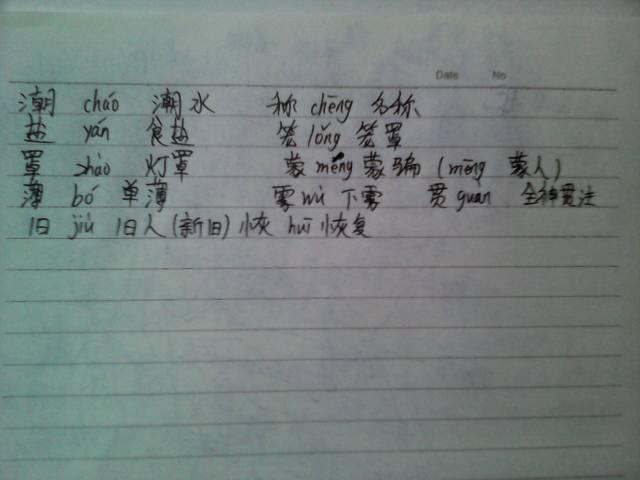 Date No
潮 cháo 潮水 称 chēng 名称
盐 yán 食盐 笼 lǒng 笼罩
罩 zhào 灯罩 蒙 mēng 蒙骗 (mēng 蒙人)
薄 bó 单薄 雾 wù 下雾 贯 guàn 全神贯注
旧 jiù 旧人 (新旧) 恢 huī 恢复